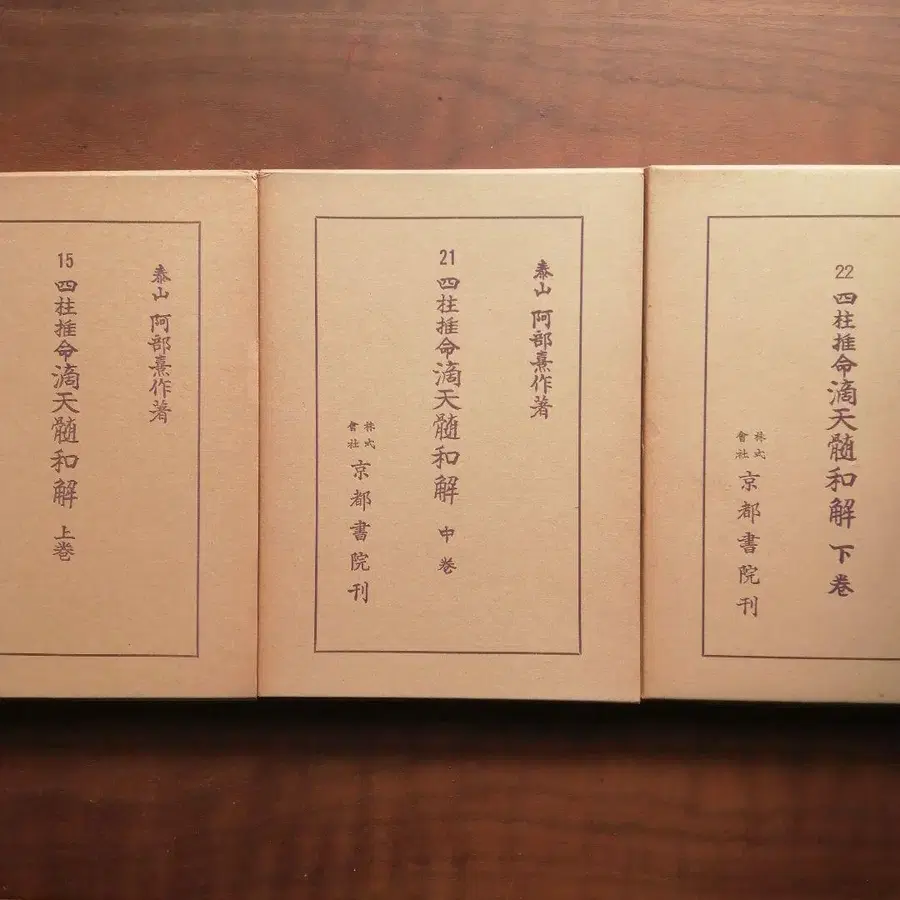 泰山 阿部熹作著
15 四柱推命滴天髄和解 上巻
泰山 阿部熹作著
21 四柱推命滴天髄和解 中巻
株式會社 京都書院刊
22 四柱推命滴天髄和解 下巻
株式會社 京都書院刊